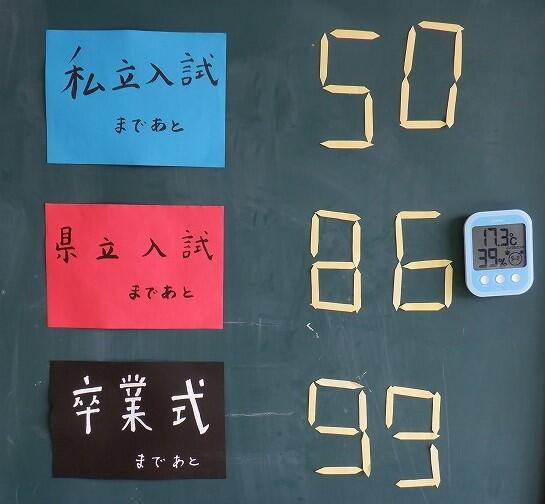 私立入試
まであと
50
県立入試
まであと
86
17.3℃
39%
卒業式
まであと
99